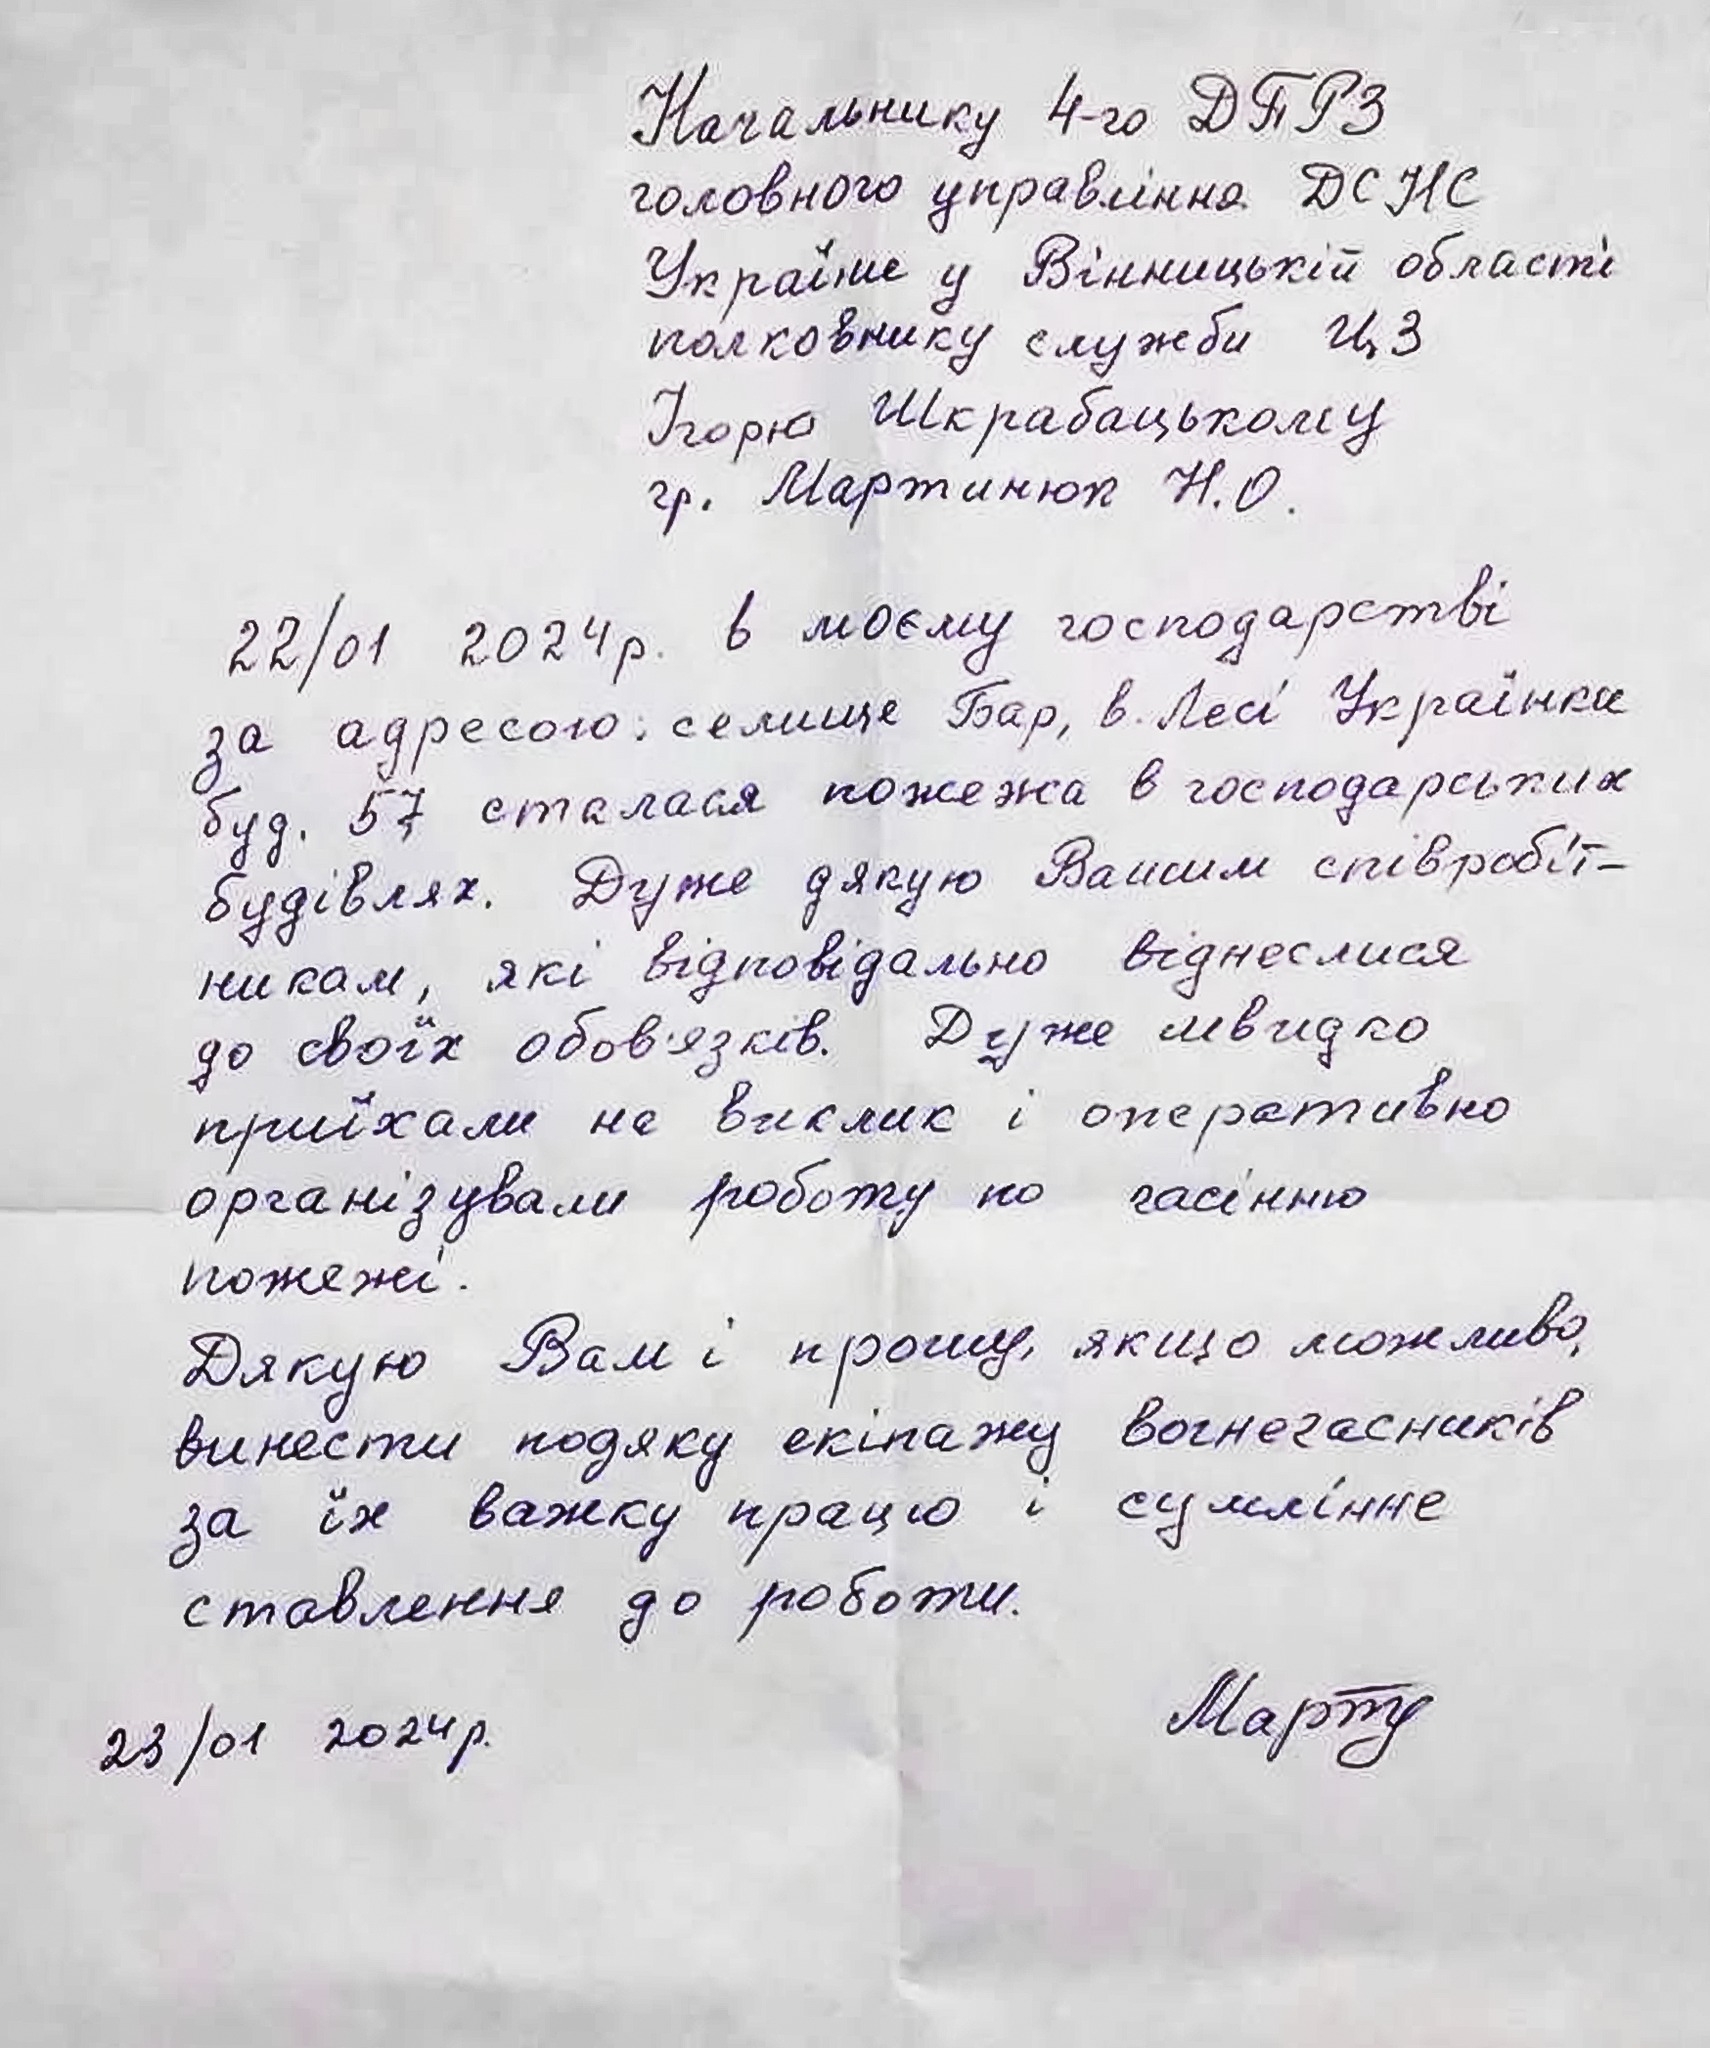 Начальнику 4-го ДПРЗ
головного управління ДСНС
України у Вінницькій області
полковнику служби ЦЗ
Ігорю Шкрабацькому
гр. Мартинюк Н.О.
22/01 2024р. в моєму господарстві
за адресою: селище Бар, в. Лесі Українки
буд. 57 сталася пожежа в господарських
будівлях. Дуже дякую Вашим співробіт-
никам, які відповідально віднеслися
до своїх обов'язків. Дуже швидко
приїхали на виклик і оперативно
організували роботу по гасінню
пожежі.
Дякую Вам і прошу, якщо можливо,
винести подяку екіпажу вогнегасників
за їх важку працю і сумлінне
ставлення до роботи.
23/01 2024р.